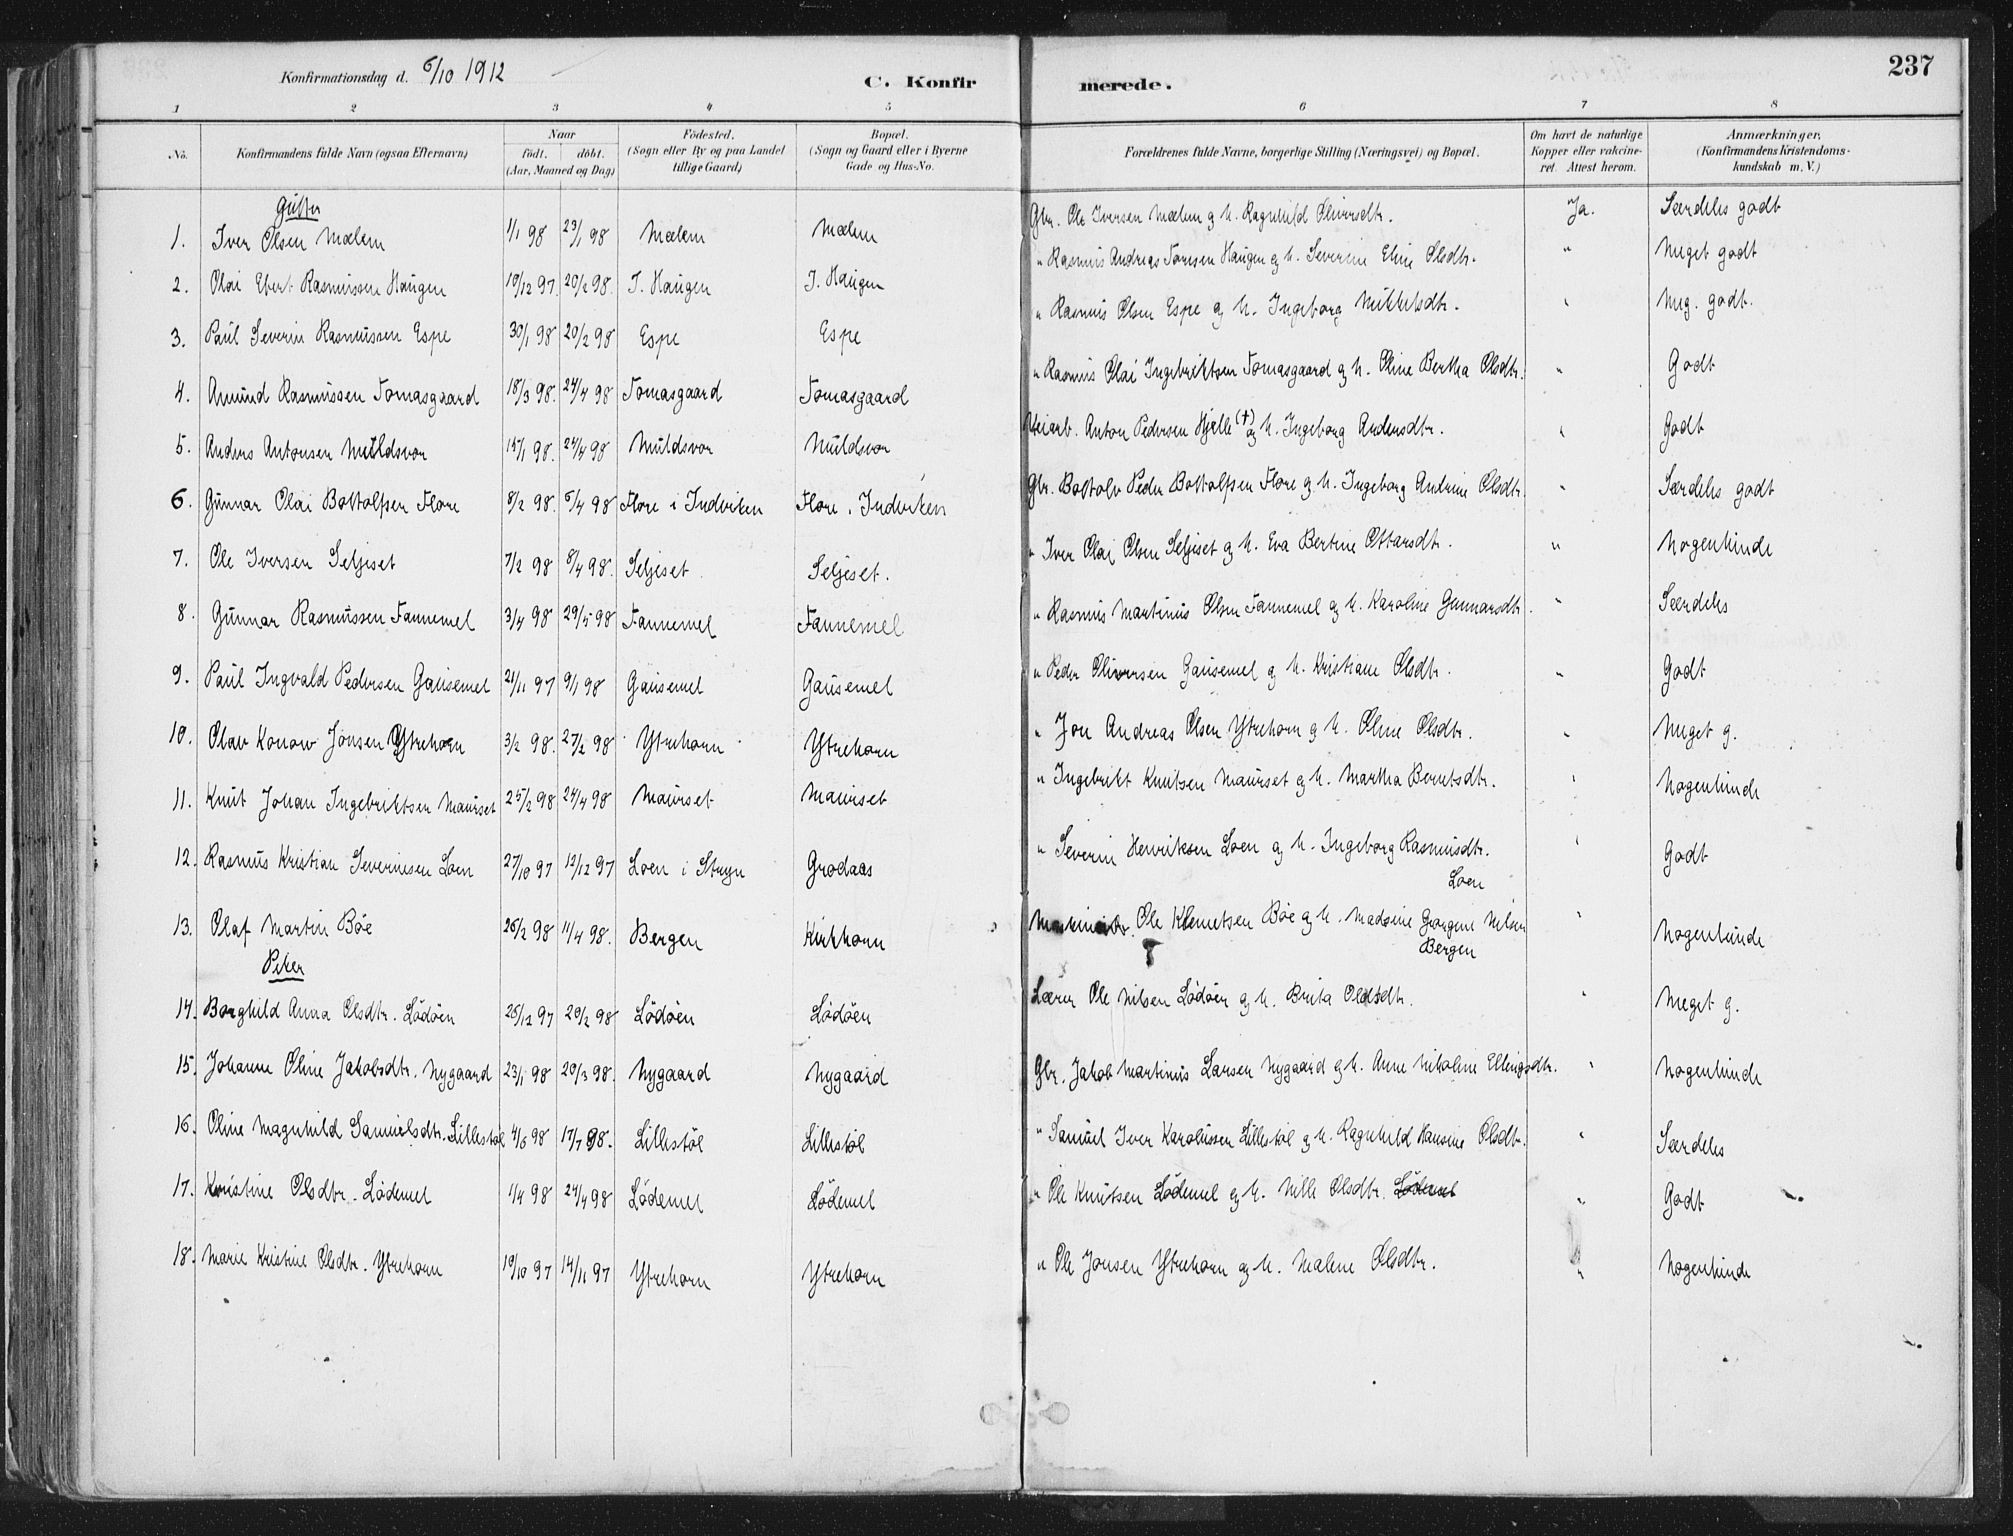 237
Konfirmationsdag d. 6/10 1912
C. Konfirmerede.
1 2 3 4 5 6 7 8
No.
Konfirmandens fulde Navn (ogsaa Efternavn)
Naar
födt. döbt.
(Aar, Maaned og Dag)
Födested.
(Sogn eller By og paa Landet
tillige Gaard)
Bopæl.
(Sogn og Gaard eller i Byerne
Gade og Hus-No.
Forældrenes fulde Navne, borgerlige Stilling (Næringsvei) og Bopæl.
Om havt de naturlige
Kopper eller vakcine-
ret. Attest herom.
Anmærkninger.
(Konfirmandens Kristendoms-
kundskab m. V.)
Gutter
1. Iver Olsen Mælem 1/1 98 23/1 98 Mælem Mælem Gbr. Ole Iversen Mælem og h. Ragnhild Oliversdtr. Ja. Særdeles godt
2. Olai Ebert Rasmussen Haugen 19/12 97. 20/2 98. I. Haugen I. Haugen " Rasmus Andreas Toresen Haugen og h. Severine Eline Olsdtr. " Meget godt
3. Paul Severin Rasmussen Espe 30/1 98 20/2 98 Espe Espe " Rasmus Olsen Espe og h. Ingeborg Mikkelsdtr. " Meg. godt.
4. Amund Rasmussen Tomasgaard 18/3 98. 24/4 98 Tomasgaard Tomasgaard " Rasmus Olai Ingebriktsen Tomasgaard og h. Oline Bertha Olsdtr. " Godt
5. Anders Antonsen Muldsvor 15/1 98. 24/4 98 Muldsvor Muldsvor Veiarb. Anton Pedersen Hjelle (+) og h. Ingeborg Andersdtr. " Godt
6. Gunnar Olai Bottolfsen Flore 8/2 98. 6/4 98 Flore i Indviken Flore i Indviken Gbr. Bottolv Peder Bottolfsen Flore og h. Ingeborg Andrine Olsdtr. " Særdeles godt
7. Ole Iversen Seljeset 7/2 98 8/4 98. Seljeset Seljeset. " Iver Olai Olsen Seljeset og h. Eva Bertine Ottarsdtr. " Nogenlunde
8. Gunnar Rasmussen Fannemel 3/4 98 29/5 98 Fannemel Fannemel " Rasmus Martinus Olsen Fannemel og h. Karoline Gunnarsdtr. " Særdeles
9. Paul Ingvald Pedersen Gausemel 21/11 97 9/1 98 Gausemel Gausemel " Peder Oliversen Gausemel og h. Kristiane Olsdtr. " Godt
10. Olav Konow Jonsen Ytrehorn 3/2 98. 27/2 98 Ytrehorn Ytrehorn " Jon Andreas Olsen Ytrehorn og h. Oline Olsdtr. " Meget g.
11. Knut Johan Ingebriktsen Maurset 25/2 98 24/4 98 Maurset Maurset " Ingebrikt Knutsen Maurset og h. Martha Berntsdtr. " Nogenlunde
12. Rasmus Kristian Severinsen Loen 27/10 97 12/12 97 Loen i Stryn Grodaas " Severin Henriksen Loen og h. Ingeborg Rasmusdtr. " Godt
Loen
13. Olaf Martin Böe 26/2 98 11/4 98. Bergen Kirkhorn Ole Klemetsen Böe og h. Madsine Georgine Nilsen " Nogenlunde
Bergen
Piker
14. Borghild Anna Olsdtr. Lödöen 26/12 97 20/2 98 Lödöen Lödöen Lærer Ole Nilsen Lödöen og h. Brita Olsdtr. " Meget g.
15. Johanne Oline Jakobsdtr. Nygaard 23/1 98 20/3 98. Nygaard Nygaard Gbr. Jakob Martinus Larsen Nygaard og h. Anne Nikoline Ellingsdtr. " Nogenlunde
16. Oline Magnhild Samuelsdtr. Lillestöl 4/6 98 17/7 98. Lillestöl Lillestöl " Samuel Iver Karolussen Lillestöl og h. Ragnhild Hansine Olsdtr. " Særdeles
17. Kristine Olsdtr. Lödemel 1/4 98 24/4 98 Lödemel Lödemel " Ole Knutsen Lödemel og h. Nille Olsdtr. Lödemel " Godt
18. Marie Kristine Olsdtr. Ytrehorn 19/10 97 14/11 97 Ytrehorn Ytrehorn " Ole Jonsen Ytrehorn og h. Malene Olsdtr. " Nogenlunde